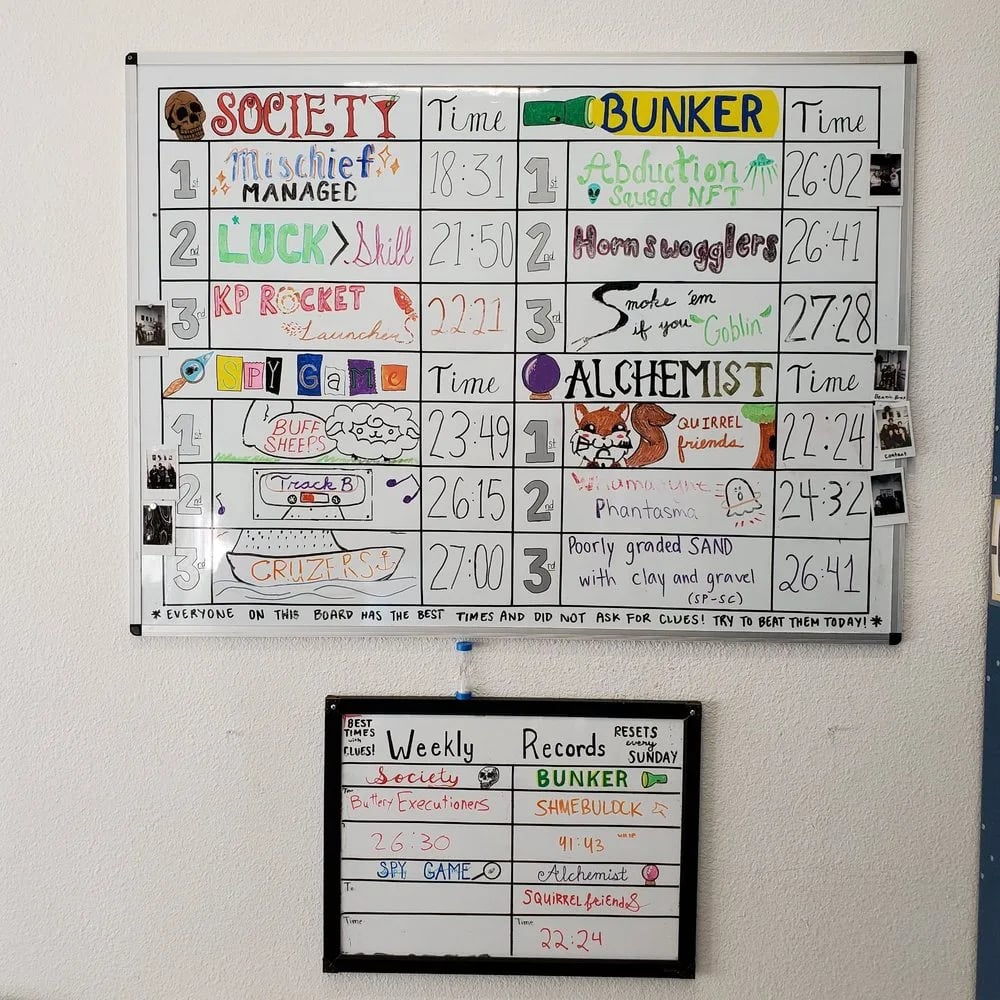 SOCIETY Time BUNKER Time
1st Mischief MANAGED 18:31 1st Abduction Squad NFT 26:02
2nd LUCK > Skill 21:50 2nd Hornswogglers 26:41
3rd KP ROCKET Launchers 22:21 3rd Smoke 'em if you "Goblin" 27:28
SPY GAMe Time ALCHEMIST Time
1st BUFF SHEEPS 23:49 1st SQUIRREL friends 22:24
2nd Track B 26:15 2nd Phantasma 24:32
3rd CRUZERS 27:00 3rd Poorly graded SAND with clay and gravel (SP-SC) 26:41
* EVERYONE ON THIS BOARD HAS THE BEST TIMES AND DID NOT ASK FOR CLUES! TRY TO BEAT THEM TODAY! *
BEST TIMES with CLUES! Weekly Records RESETS every SUNDAY
Society BUNKER
Buttery Executioners SHMEBULOCK
26:30 41:43
SPY GAME Alchemist
SQUIRREL friends
Time Time
22:24